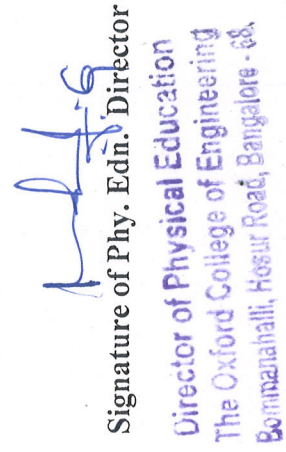 Signature of Phy. Edn. Director
Director of Physical Education
The Oxford College of Engineering
Bommanahalli, Hosur Road, Bangalore - 68.